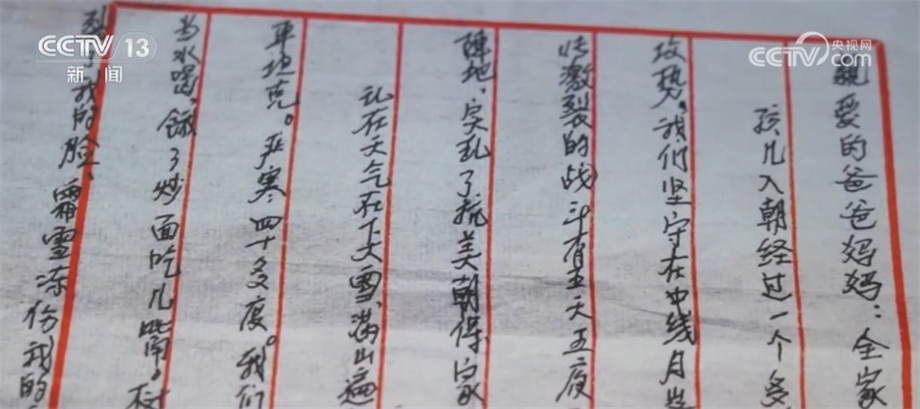 CCTV 13
新闻
央视网
CCTV.com
亲爱的爸爸妈妈：全家
孩儿入朝经过一个多
攻势。我们坚守在冲线月
烘激裂的战斗有五天五夜
阵地、实乱了抗美朝保家
乱在天气在下大雪、满山遍
军坦克。严寒四十多度。我们
当水喝、饿了炒面吃几啃。
我的脸、霜雪冻份我的